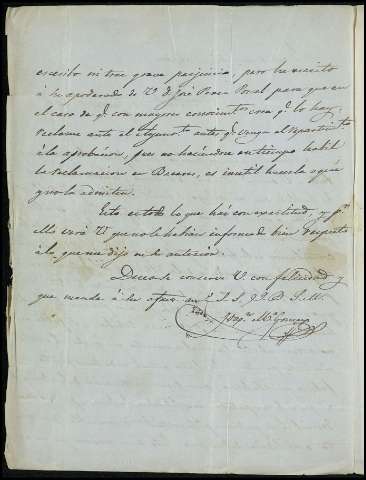 escrito ni trae grave perjuicio, pero he escrito
á su apoderado de V. D. José Perez Ponal para que en
el caso de q.e con mayor conocimt.o crea q.e lo hay,
reclame ante el Ayunt.o antes q.e venga el repartim.to
á la aprobacion, pues no haciendose en tiempo habil
la reclamacion en Becerreá, es inutil hacerla aquí
q.e no la admiten.
Esto es todo lo que hay con exactitud, y p.r
ello verá V. que no le habian informado bien respecto
á lo que me dijo en la anterior.
Deseo se conserve V. con felicidad y
que mande á su afmo. S. S. Q. B. S. M.